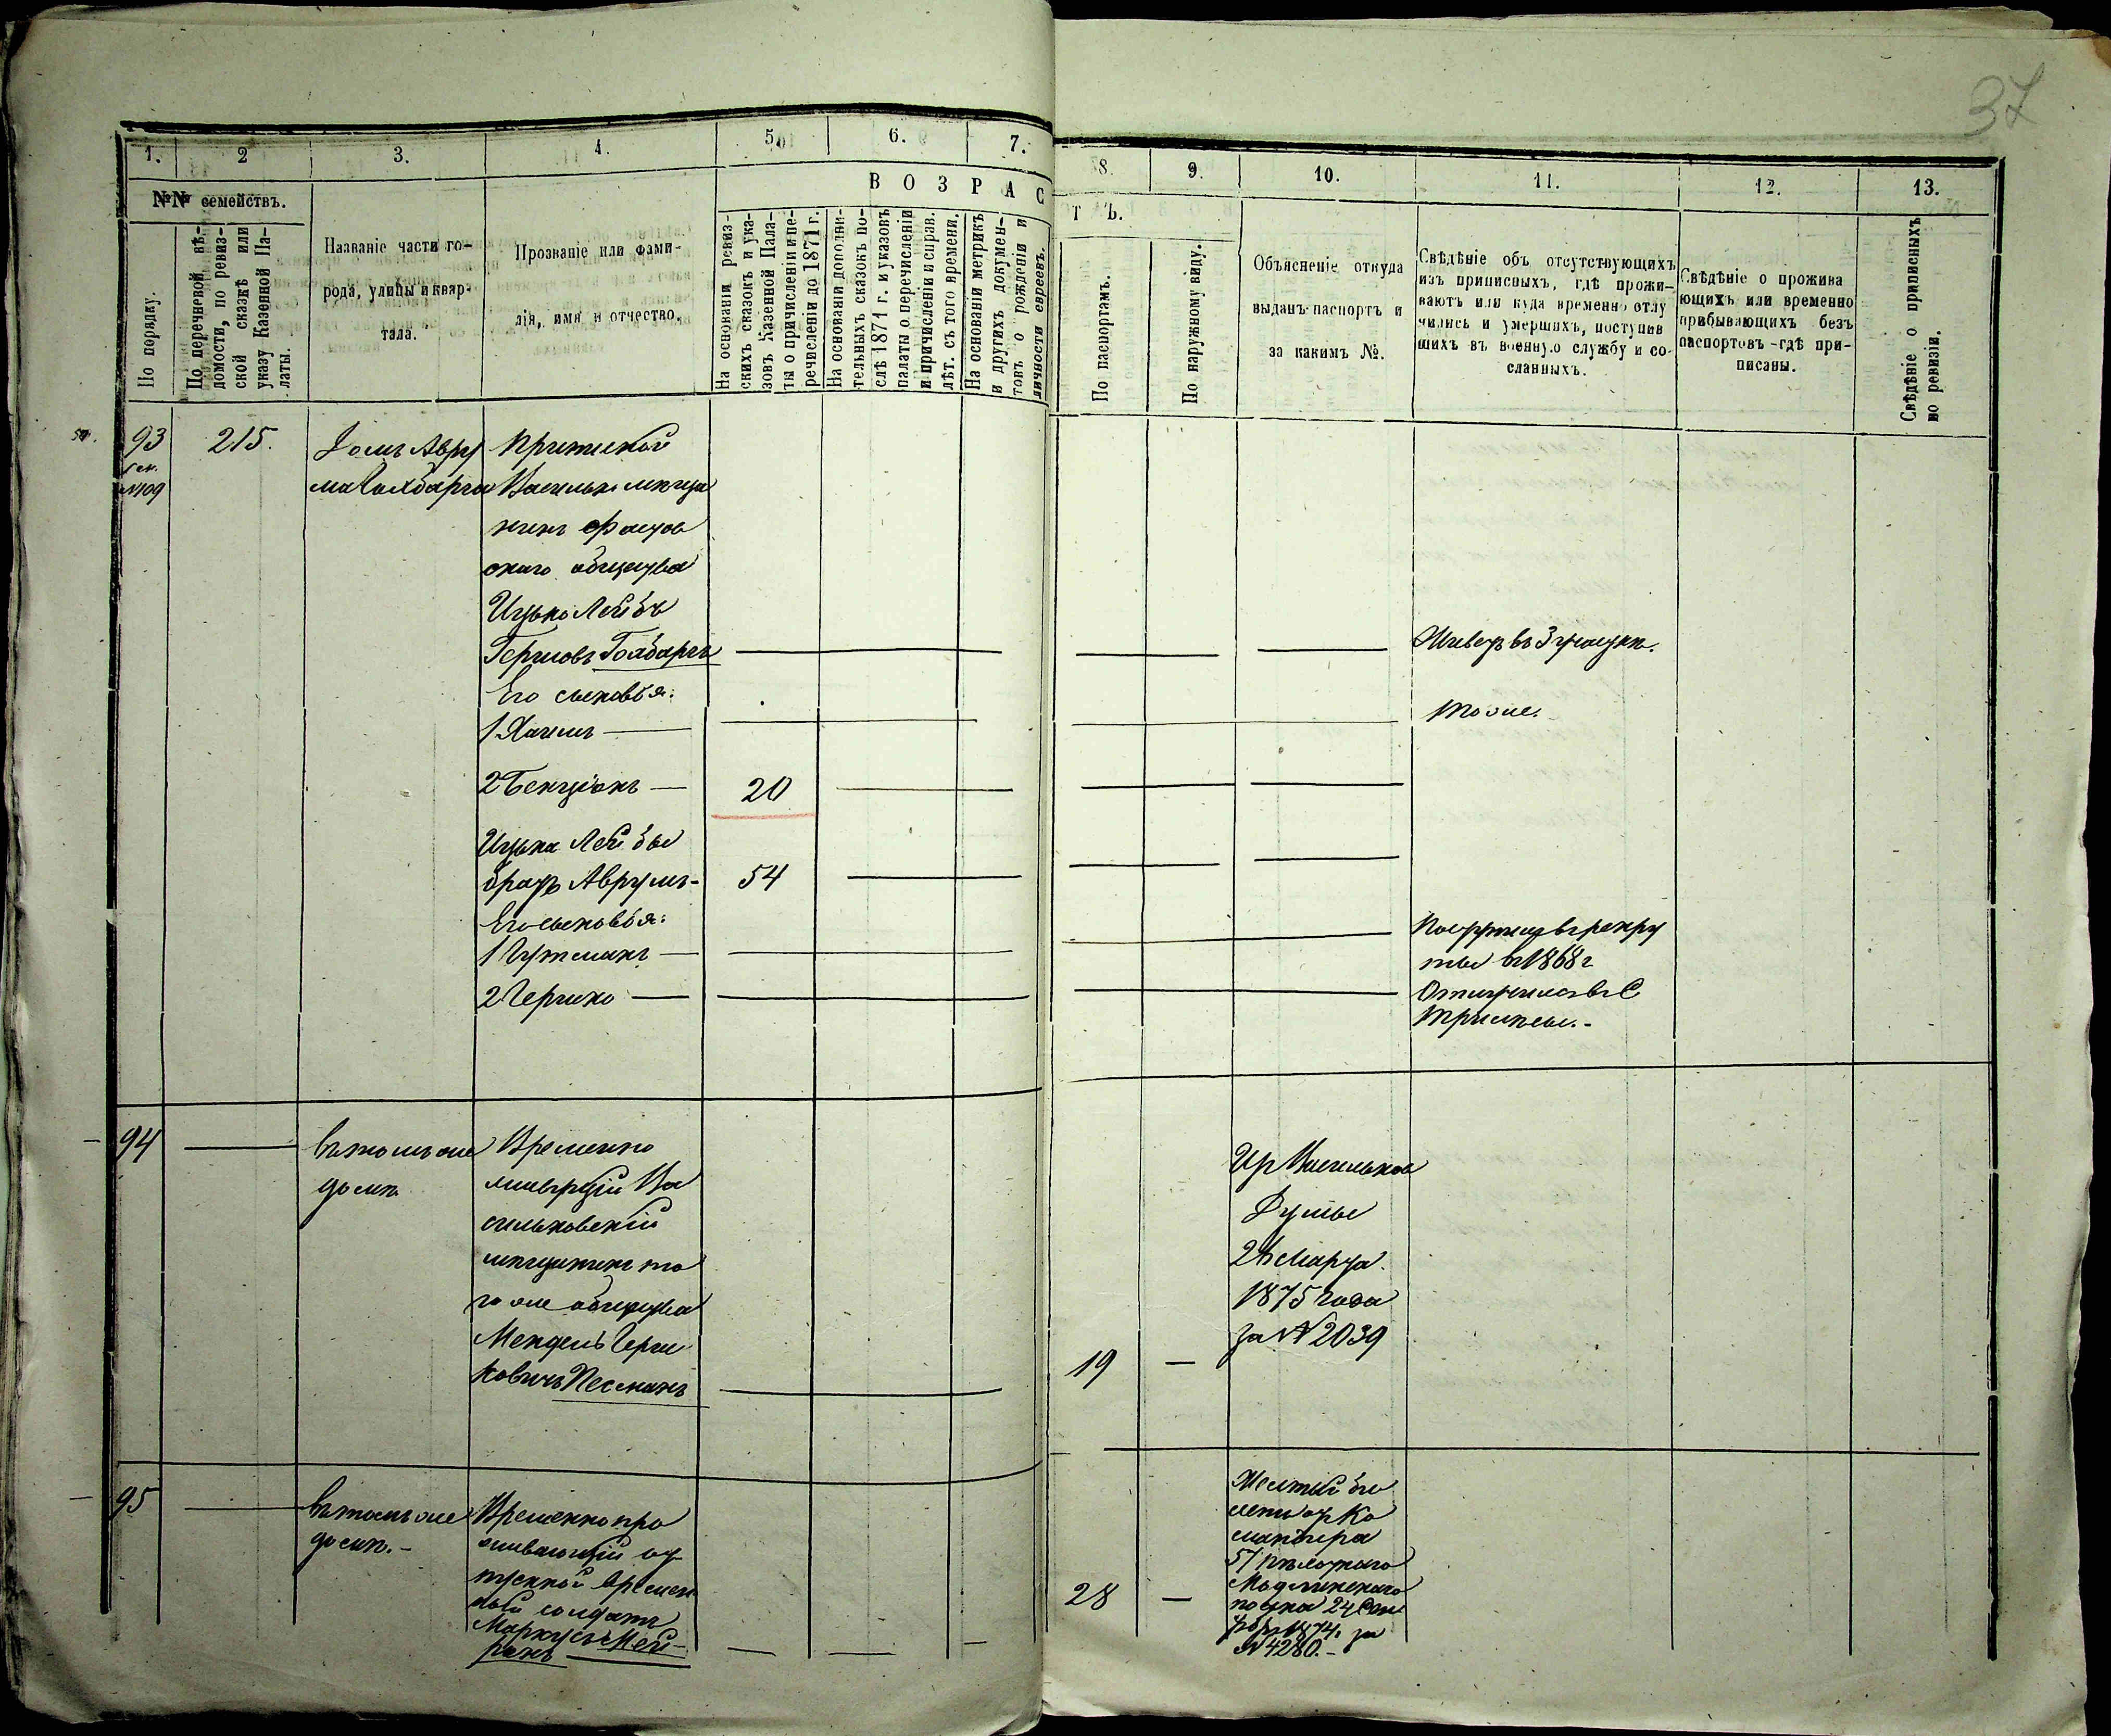 37
1. 2 3. 4. 5. 6. 7. 8. 9. 10. 11. 12. 13.
№№ семействъ.
В О З Р А С Т Ъ.
По порядку.
По перечневой вѣ-
домости, по ревиз-
ской сказкѣ или
указу Казенной Па-
латы.
Названіе части го-
рода, улицы и квар-
тала.
Прозваніе или фами-
лія, имя и отчество.
На основаніи ревиз-
скихъ сказокъ и ука-
зовъ Казенной Пала-
ты о причисленіи и пе-
речисленіи до 1871 г.
На основаніи дополни-
тельныхъ сказокъ по-
слѣ 1871 г. и указовъ
палаты о перечисленіи
и причисленіи и справ.
лѣт. съ того времени.
На основаніи метрикъ
и другихъ докумен-
товъ о рожденіи и
личности евреевъ.
По паспортамъ.
По наружному виду.
Объясненіе откуда
выданъ паспортъ и
за какимъ №.
Свѣдѣніе объ отсутствующихъ
изъ приписныхъ, гдѣ прожи-
ваютъ или куда временно отлу
чились и умершихъ, поступив
шихъ въ военную службу и со-
сланныхъ.
Свѣдѣніе о прожива
ющихъ или временно
прибывающихъ безъ
паспортовъ - гдѣ при-
писаны.
Свѣдѣніе о приписныхъ
по ревизіи.
93
№109
215.
Домъ Авру
ма Голдбарга
Приписной
Васильк. мѣща
нинъ Фастов
скаго общества
Ицько Лейбъ
Гершовъ Голдбаргъ
Живетъ въ 3 участкѣ.
Его сыновья:
1 Хаимъ
тоже.
2 Бенціонъ 20
Ицька Лейбы
братъ Аврумъ - 54
Его сыновья:
1 Гутманъ
Поступилъ въ рекру
ты въ 1868 г
2 Гершко
Отлучился въ С
Триполье.-
94
въ томъ же
домѣ
Временно
живущій Ва
сильковскій
мѣщанинъ то
го же общества
Мендель Герш
ковичъ Песманъ
19
Изъ Васильков
Думы
24 Марта
1875 года
за № 2039
95
въ томъ же
домѣ.-
Временно про
живающій от
пускной времен
ный солдатъ
Маркусъ Мей-
ранъ
28
Желтый би
летъ отъ Ко
мандира
57 пѣхотнаго
Модлинскаго
полка 24 Сен
тября 1874. за
№ 4280.-